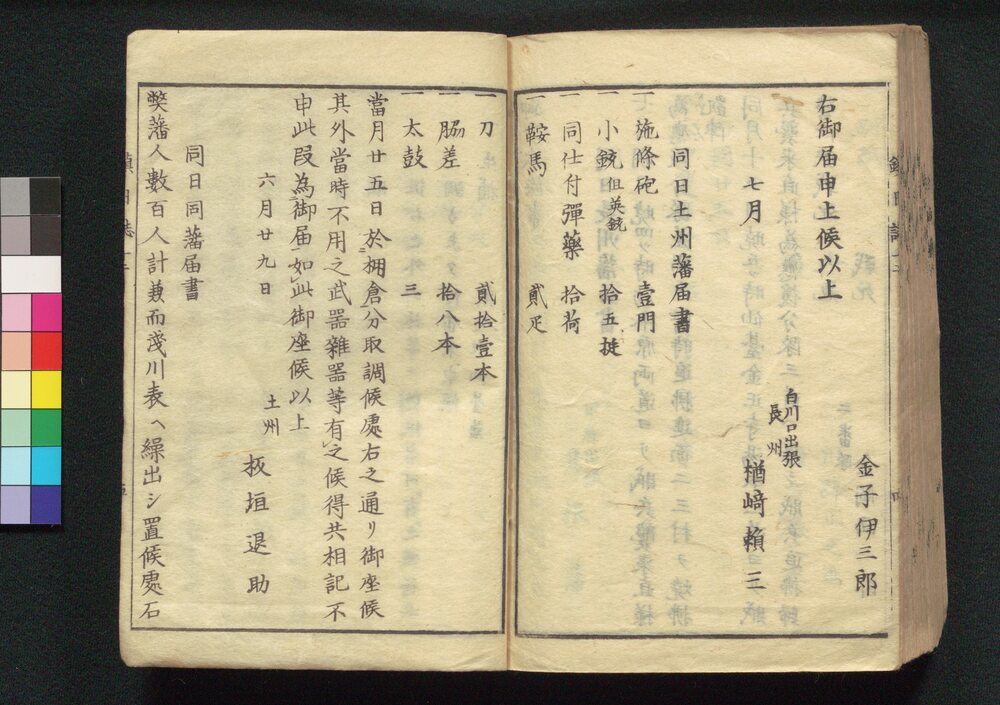 金子伊三郎
右御届申上候以上
白川口出張
長州
七月 楢﨑頼三
同日土州藩届書
一施條砲 壹門
一小銃但英銃 拾五挺
一同仕付彈藥 拾荷
一鞍馬 貳疋
一刀 貳拾壹本
一脇差 拾八本
一太鼓 三
當月廿五日於棚倉分取調候處右之通リ御座候
其外當時不用之武器雜器等有之候得共相記不
申此段為御届如此御座候以上
六月廿九日
土州
板垣退助
同日同藩届書
獘藩人數百人計兼而淺川表ヘ繰出シ置候處石